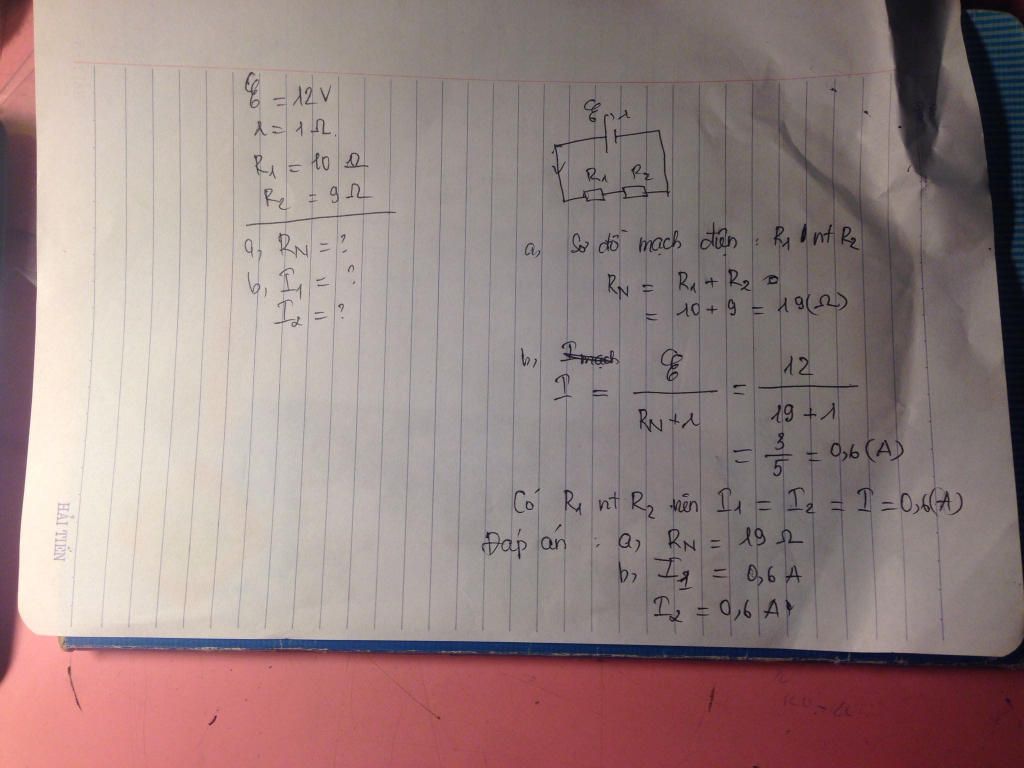 ℰ = 12V
r = 1 Ω.
R₁ = 10 Ω
R₂ = 9 Ω
a, R_N = ?
b, I₁ = ?
I₂ = ?
ℰ, r
R₁ R₂
a, Sơ đồ mạch điện : R₁ nt R₂
R_N = R₁ + R₂
= 10 + 9 = 19 (Ω)
b, I mạch
I = ℰ / (R_N + r) = 12 / (19 + 1)
= 3/5 = 0,6 (A)
Có R₁ nt R₂ nên I₁ = I₂ = I = 0,6(A)
Đáp án : a, R_N = 19 Ω
b, I₁ = 0,6 A
I₂ = 0,6 A
HẢI TIẾN